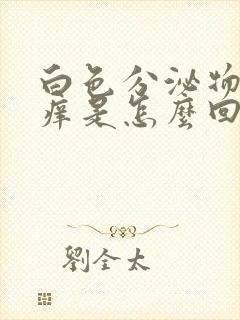 白色分泌物
痒是怎麼回
劉全太